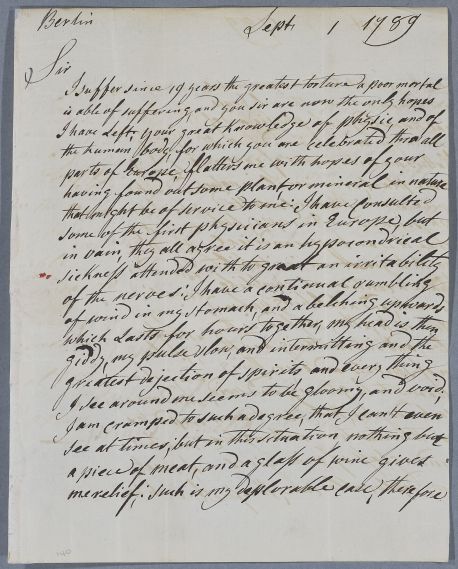 Berlin
Sept. 1 1789
Sir
I suffer since 19 years the greatest torture a poor mortal
is able of suffering, and you sir are now the only hopes
I have Left, your great knowledge of physic and of
the human body, for which you are celebrated thro all
parts of Europe, flatters me with hopes of your
having found out some plant or mineral in nature
that might be of service to me: I have consulted
some of the first physicians in Europe, but
in vain, they all agree it is an hypocondrical
sickness attended with to great an irritability
of the nerves: I have a continual rumbling
of wind in my stomach, and a belching upwards
which Lasts for hours together, my head is then
giddy, my pulse slow, and intermitting and the
greatest dejection of spirits and every thing
I see around me seems to be gloomy, and void.
I am cramped to such a degree, that I can't even
see at times, but in this situation nothing but
a piece of meat, and a glass of wine gives
me relief: such is my deplorable case, therefore